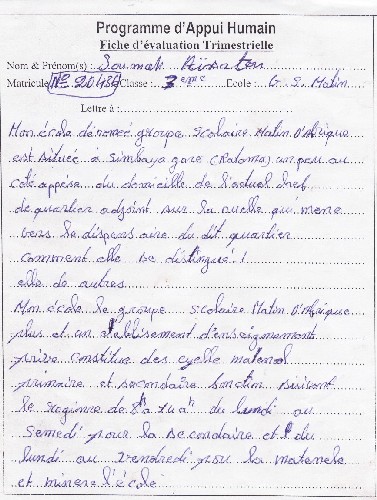 Programme d'Appui Humain
Fiche d'évaluation Trimestrielle
Nom & Prénom(s) : Soumah
Matricule N° 20486 Classe : 7eme Ecole : G. S. Matin
Lettre à :
Mon école dénomée groupe scolaire Matin D'Afrique
est située à Simbaya gare (Ratoma) un peu au
côté appère du domicille de l'actuel chef
de quartier adjoint sur la ruelle qui mene
vers le dispensaire du dit quartier
comment elle se distingue !
elle de autres
Mon école le groupe scolaire Matin D'Afrique
plus et un établisement d'enseignement
privé constitue des cycle maternel
primaire et secondaire
le regime de 8h a du lundi au
Semedi pour la secondaire et du
lundi au vendredi pour la maternele
et l'école